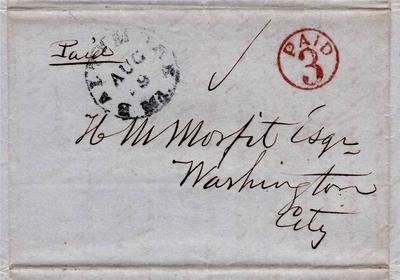 Paid
BALTIMORE Md
AUG
9
PAID
3
H M Morfit Esqr
Washington
City